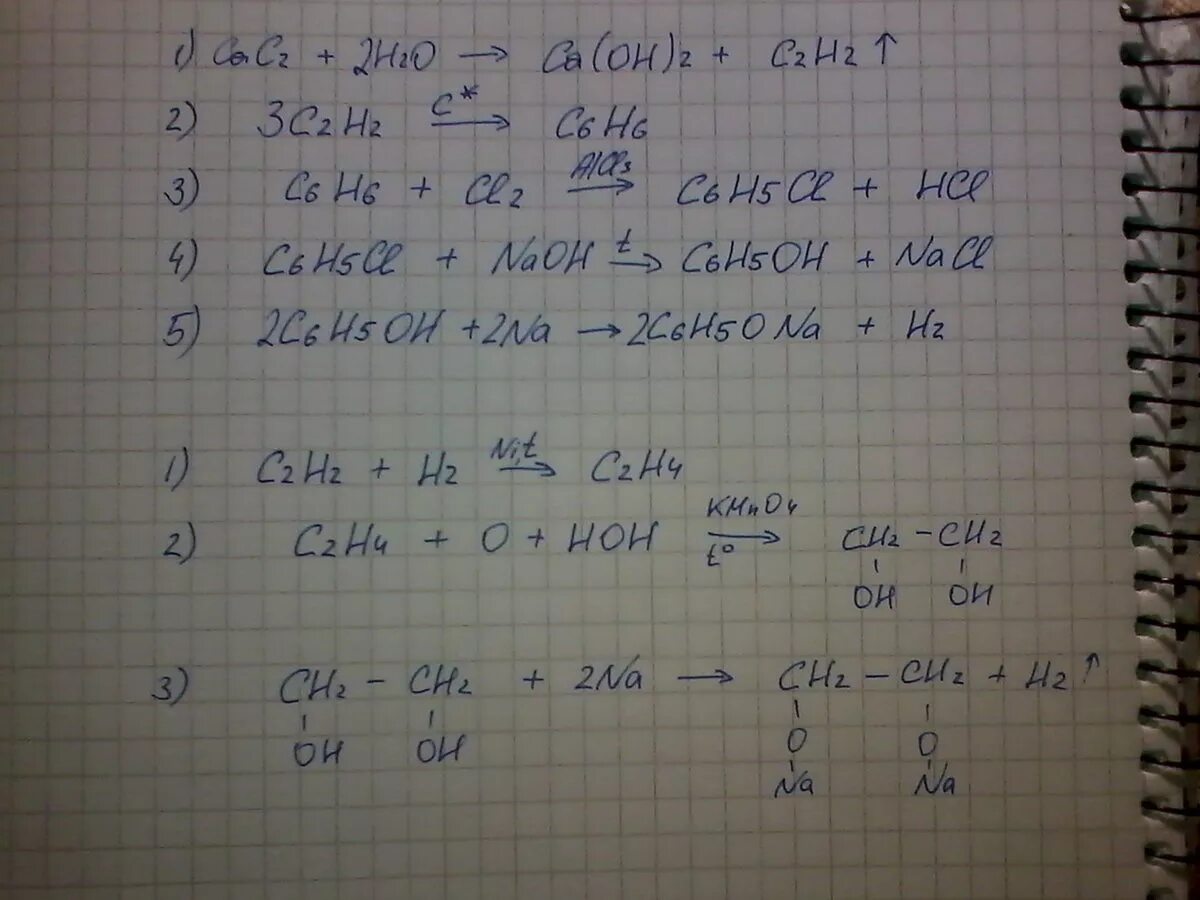 1) CaC2 + 2H2O → Ca(OH)2 + C2H2 ↑
2) 3C2H2 C* → C6H6
3) C6H6 + Cl2 AlCl3 → C6H5Cl + HCl
4) C6H5Cl + NaOH t → C6H5OH + NaCl
5) 2C6H5OH + 2Na → 2C6H5ONa + H2
1) C2H2 + H2 Ni,t → C2H4
2) C2H4 + O + HOH KMnO4 → t° CH2 - CH2
OH OH
3) CH2 - CH2 + 2Na → CH2 - CH2 + H2 ↑
OH OH O O
Na Na